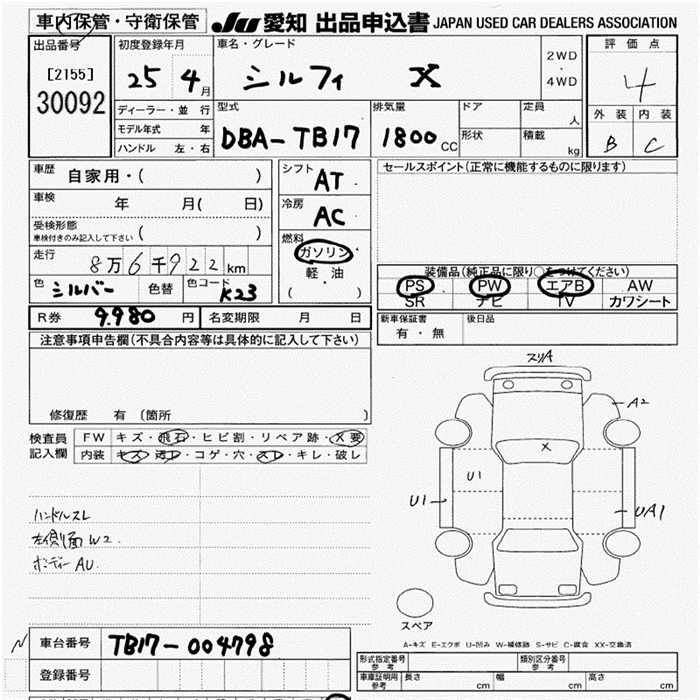 車内保管・守衛保管
JU 愛知 出品申込書 JAPAN USED CAR DEALERS ASSOCIATION
出品番号
[2155]
30092
初度登録年月
25 4 月
車名・グレード
シルフィ X
2WD
・
4WD
評価点
4
外装 内装
B C
ディーラー・並行
モデル年式 年
ハンドル 左・右
型式
DBA-TB17
排気量
1800 CC
ドア
形状
定員
人
積載
kg
車歴 自家用・( )
車検 年 月( 日)
受検形態
車検付きのみ記入して下さい ( )
走行
8万6千922km
色 シルバー 色替 色コード K23
シフト
AT
冷房
AC
燃料
ガソリン・
軽油
( ・ )
セールスポイント(正常に機能するものに限ります)
装備品(純正品に限り○をつけてください)
PS PW エアB AW
SR ナビ TV カワシート
R券 9.980 円 名変期限 月 日
新車保証書
有・無
後日品
注意事項申告欄(不具合内容等は具体的に記入して下さい)
修復歴 有(箇所 )
検査員
記入欄
FW キズ・飛石・ヒビ割・リペア跡・X要
内装 キズ・汚レ・コゲ・穴・スレ・キレ・破レ
ハンドルスレ
左側面 W2
ボディー AU
スリA
A2
X
U1
U1
UA1
スペア
A-キズ E-エクボ U-凹み W-補修跡 S-サビ C-腐食 XX-交換済
車台番号 TB17-004798
登録番号
形式指定番号
参考
類別区分番号
参考
車庫証明用
参考
長さ cm 幅 cm 高さ cm